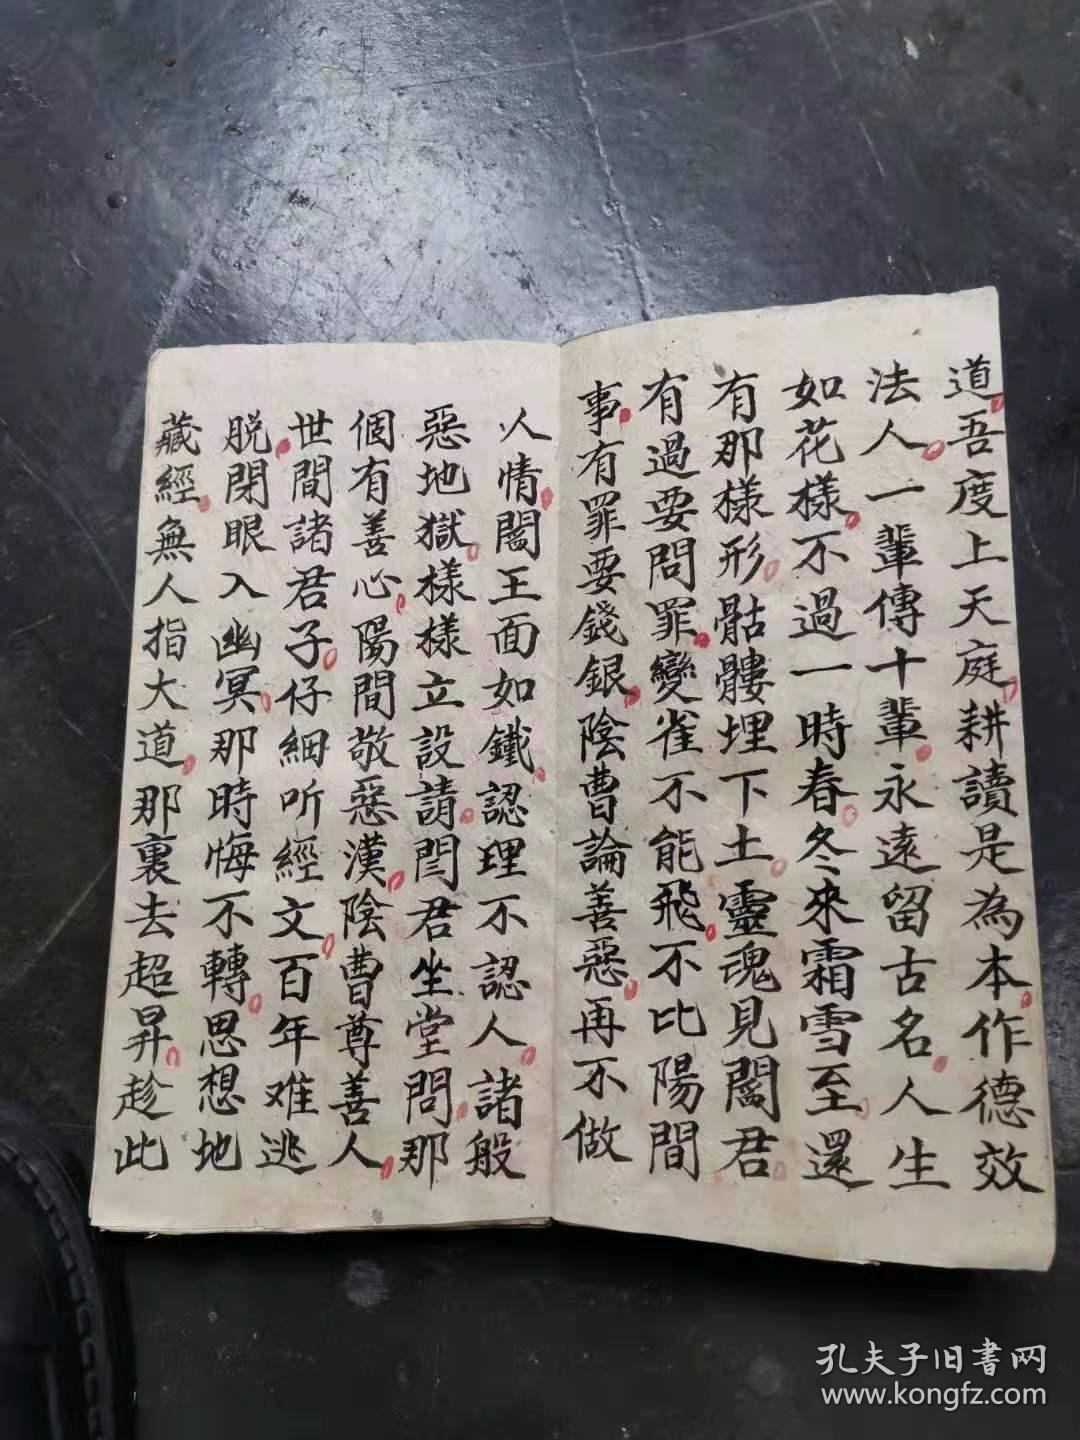 道吾度上天庭耕讀是為本作德效
法人一輩傳十輩永遠留古名人生
如花樣不過一時春冬來霜雪至還
有那樣形骷髏埋下土靈魂見閻君
有過要問罪變雀不能飛不比陽間
事有罪要錢銀陰曹論善惡再不做
人情閻王面如鐵認理不認人諸般
惡地獄樣樣立設請閆君坐堂問那
個有善心陽間敬惡漢陰曹尊善人
世間諸君子仔細听經文百年难逃
脱閉眼入幽冥那時悔不轉思想地
藏經無人指大道那裏去超昇趁此
孔夫子旧書网
www.kongfz.com